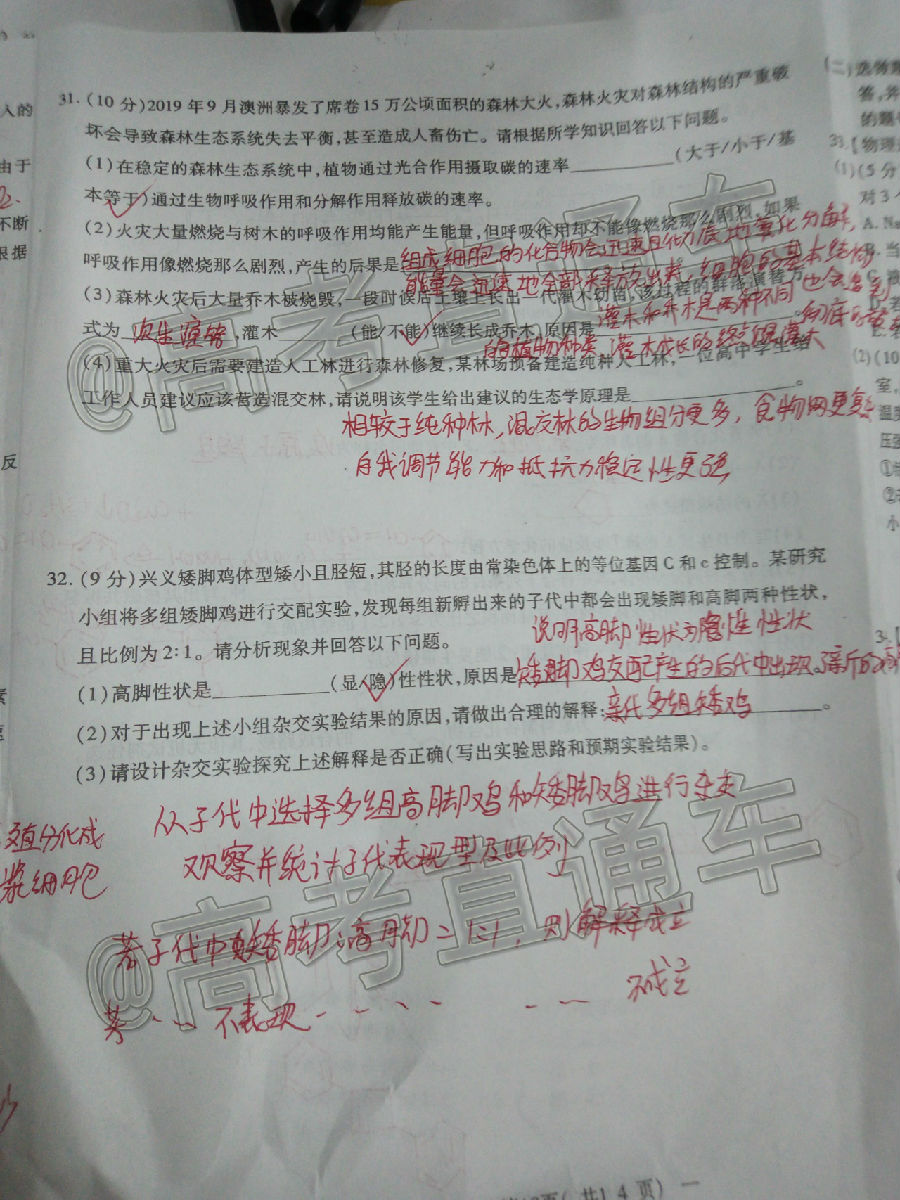 31.(10分)2019年9月澳洲暴发了席卷15万公顷面积的森林大火,森林火灾对森林结构的严重破
坏会导致森林生态系统失去平衡,甚至造成人畜伤亡。请根据所学知识回答以下问题。
(1)在稳定的森林生态系统中,植物通过光合作用摄取碳的速率____________(大于/小于/基
本等于)通过生物呼吸作用和分解作用释放碳的速率。
(2)火灾大量燃烧与树木的呼吸作用均能产生能量,但呼吸作用却不能像燃烧那么剧烈,如果
呼吸作用像燃烧那么剧烈,产生的后果是组成细胞的化合物会迅速且彻底地氧化分解
能量会迅速地全部释放出来,细胞的基本结构也会
(3)森林火灾后大量乔木被烧毁,一段时候后土壤上长出一代灌木幼苗,该过程的群落演替方
式为 次生演替,灌木______(能/不能)继续长成乔木,原因是灌木和乔木是两种不同
的植物种类 灌木成长的终
(4)重大火灾后需要建造人工林进行森林修复,某林场预备建造纯种人工林,一位高中学生给
工作人员建议应该营造混交林,请说明该学生给出建议的生态学原理是____________。
相较于纯种林,混交林的生物组分更多,食物网更复
自我调节能力和抵抗力稳定性更强
32.(9分)兴义矮脚鸡体型矮小且胫短,其胫的长度由常染色体上的等位基因C和c控制。某研究
小组将多组矮脚鸡进行交配实验,发现每组新孵出来的子代中都会出现矮脚和高脚两种性状,
且比例为2:1。请分析现象并回答以下问题。
说明高脚性状为隐性性状
(1)高脚性状是____________(显/隐)性性状,原因是矮脚鸡交配产生的后代中出现了新的
(2)对于出现上述小组杂交实验结果的原因,请做出合理的解释:亲代多组矮鸡____________。
(3)请设计杂交实验探究上述解释是否正确(写出实验思路和预期实验结果)。
从子代中选择多组高脚鸡和矮脚鸡进行杂交
观察并统计子代表现型及比例
若子代中矮脚:高脚=1:1,则解释成立
若--不表现---- --- 不成立
分化成
浆细胞
共14页)